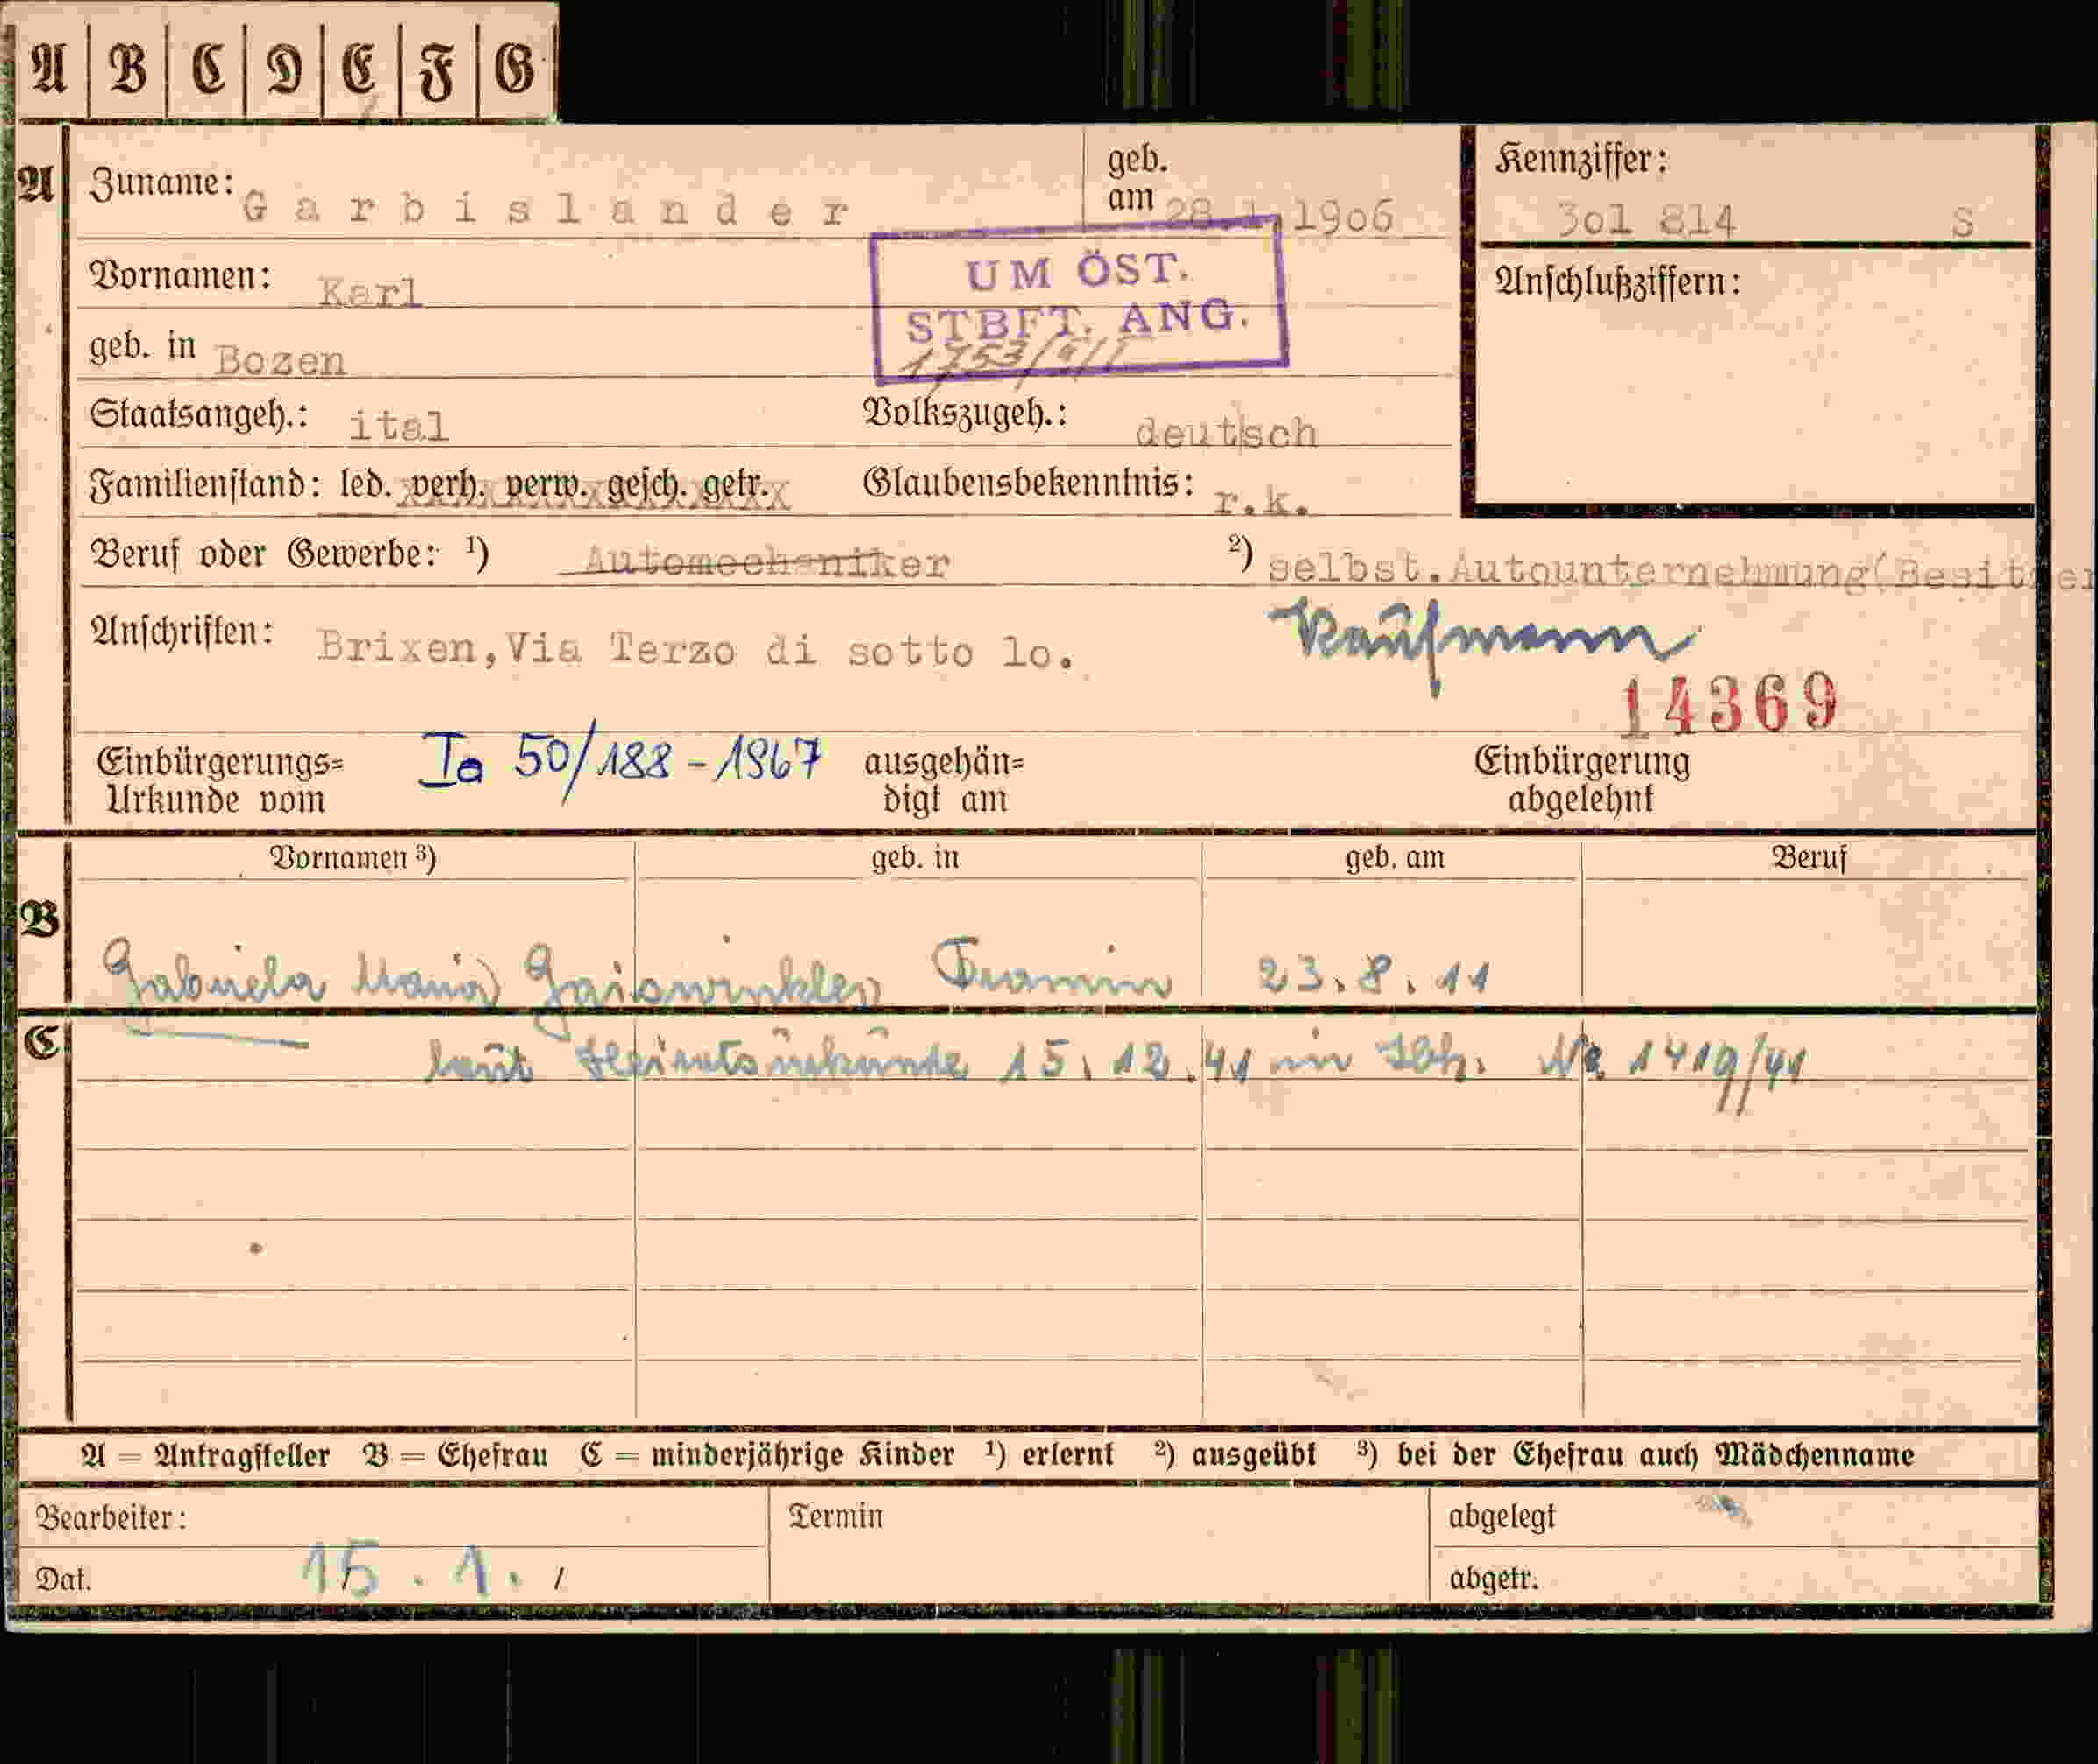 A B C D E F G
A Zuname: Garbislander geb. am 28.1.1906 Kennziffer: 3o1 814 S
Vornamen: Karl UM ÖST. Anschlußziffern:
STBFT. ANG.
geb. in Bozen
Staatsangeh.: ital Volkszugeh.: deutsch
Familienstand: led. verh. verw. gesch. getr. Glaubensbekenntnis: r.k.
Beruf oder Gewerbe: 1) Automechaniker 2) selbst.Autounternehmung(Besitzer
Anschriften: Brixen,Via Terzo di sotto 1o. Kaufmann
14369
Einbürgerungs= Ia 50/188-1967 ausgehän= Einbürgerung
Urkunde vom digt am abgelehnt
Vornamen 3) geb. in geb. am Beruf
B
Gabriela Maria Gaiswinkler Tramin 23.8.11
C laut Heiratsurkunde 15.12.41 in Nr 1419/41
A = Antragsteller B = Ehefrau C = minderjährige Kinder 1) erlernt 2) ausgeübt 3) bei der Ehefrau auch Mädchenname
Bearbeiter: Termin abgelegt
Dat. 15.1. abgetr.